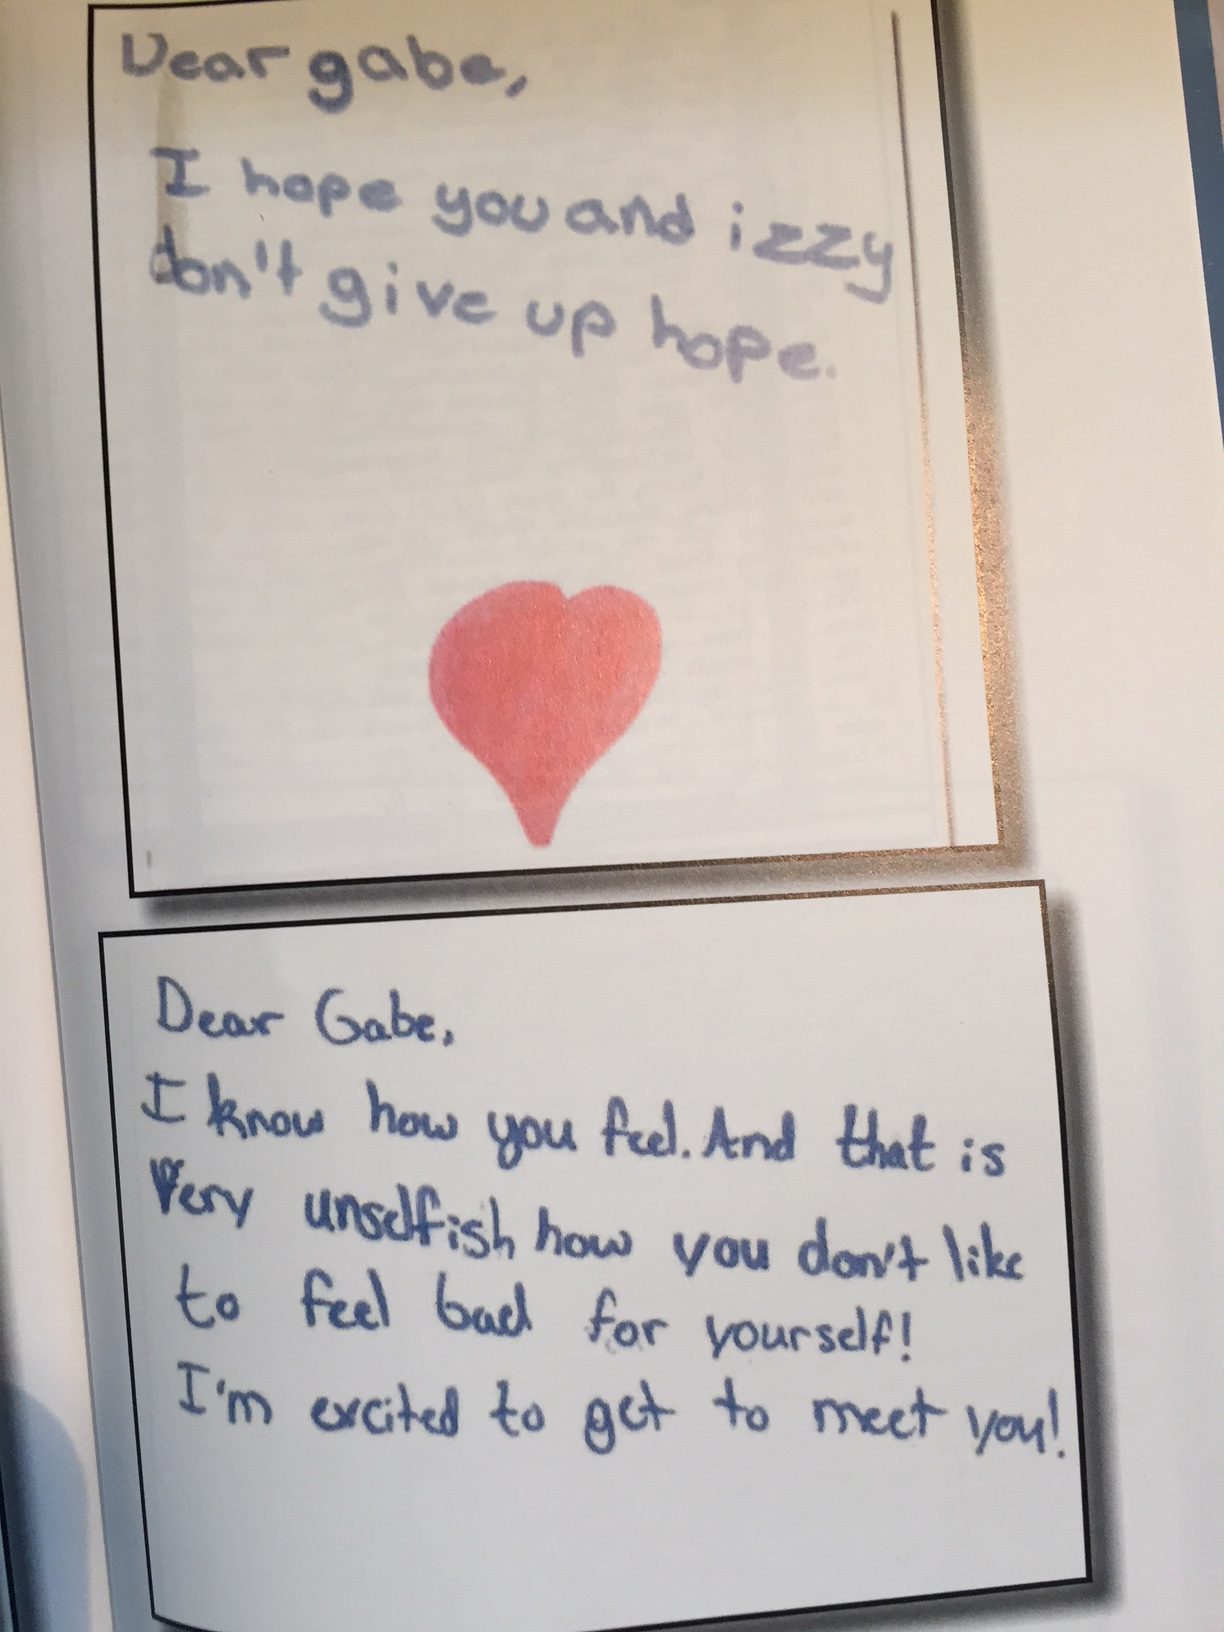 Dear gabe,
I hope you and izzy
don't give up hope.
Dear Gabe,
I know how you feel. And that is
Very unselfish how you don't like
to feel bad for yourself!
I'm excited to get to meet you!